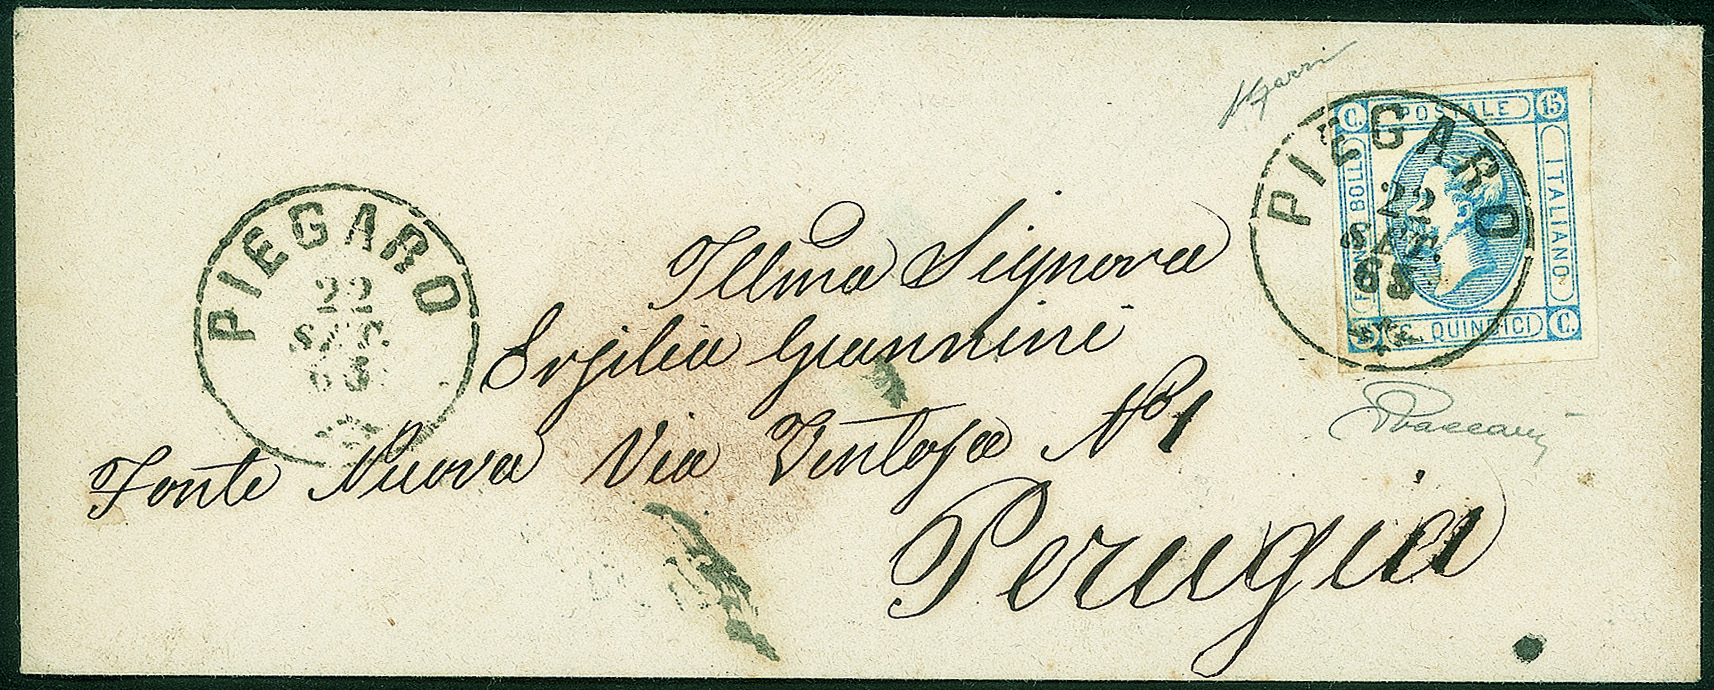 PIEGARO
22
SET.
63
C. POSTALE 15
FRANCO BOLLO
ITALIANO
15 C. QUINDICI C.
PIEGARO
22
SET.
63
Illma Signora
Ersilia Giannini
Fonte Nuova Via Ventosa No 1
Perugia